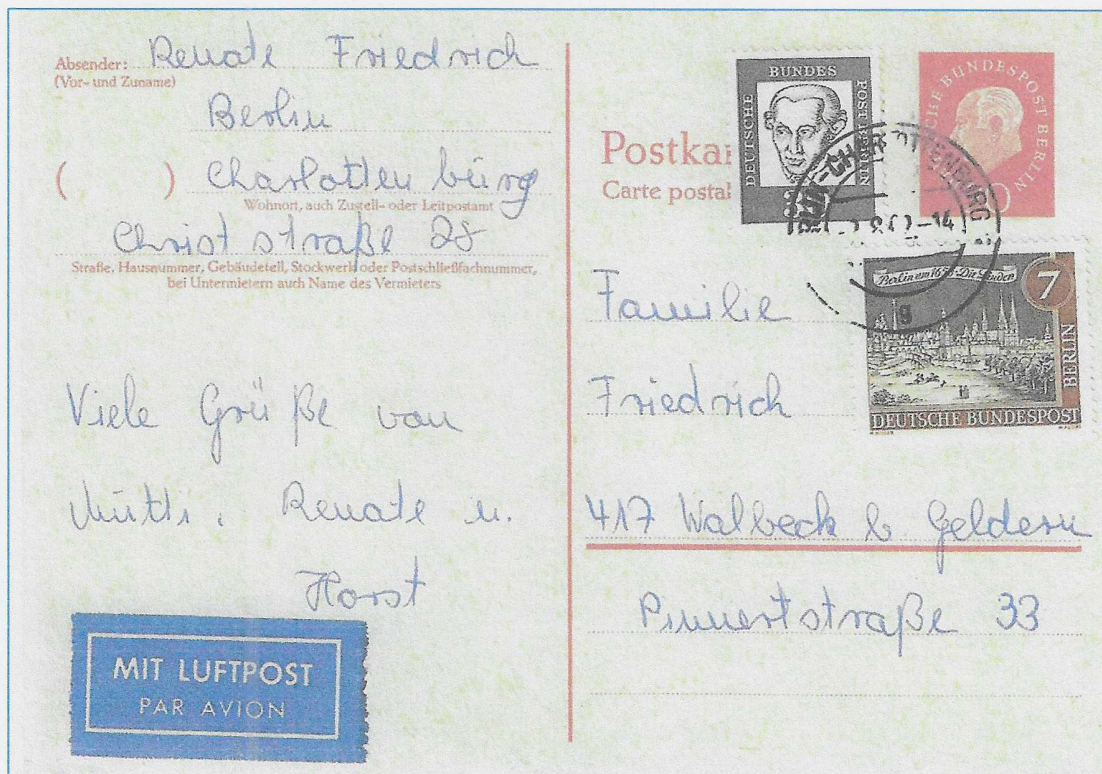 Absender: Renate Friedrich
(Vor- und Zuname)
Berlin
( ) Charlottenburg
Wohnort, auch Zustell- oder Leitpostamt
Christstraße 28
Straße, Hausnummer, Gebäudeteil, Stockwerk oder Postschließfachnummer,
bei Untermietern auch Name des Vermieters
Viele Grüße von
Mutti, Renate u.
Horst
MIT LUFTPOST
PAR AVION
DEUTSCHE BUNDESPOST BERLIN
DEUTSCHE BUNDESPOST BERLIN
Postkar
Carte postal
Berlin um 1650-Die Linden
7
BERLIN
DEUTSCHE BUNDESPOST
Familie
Friedrich
417 Walbeck b Geldern
Pinnertstraße 33